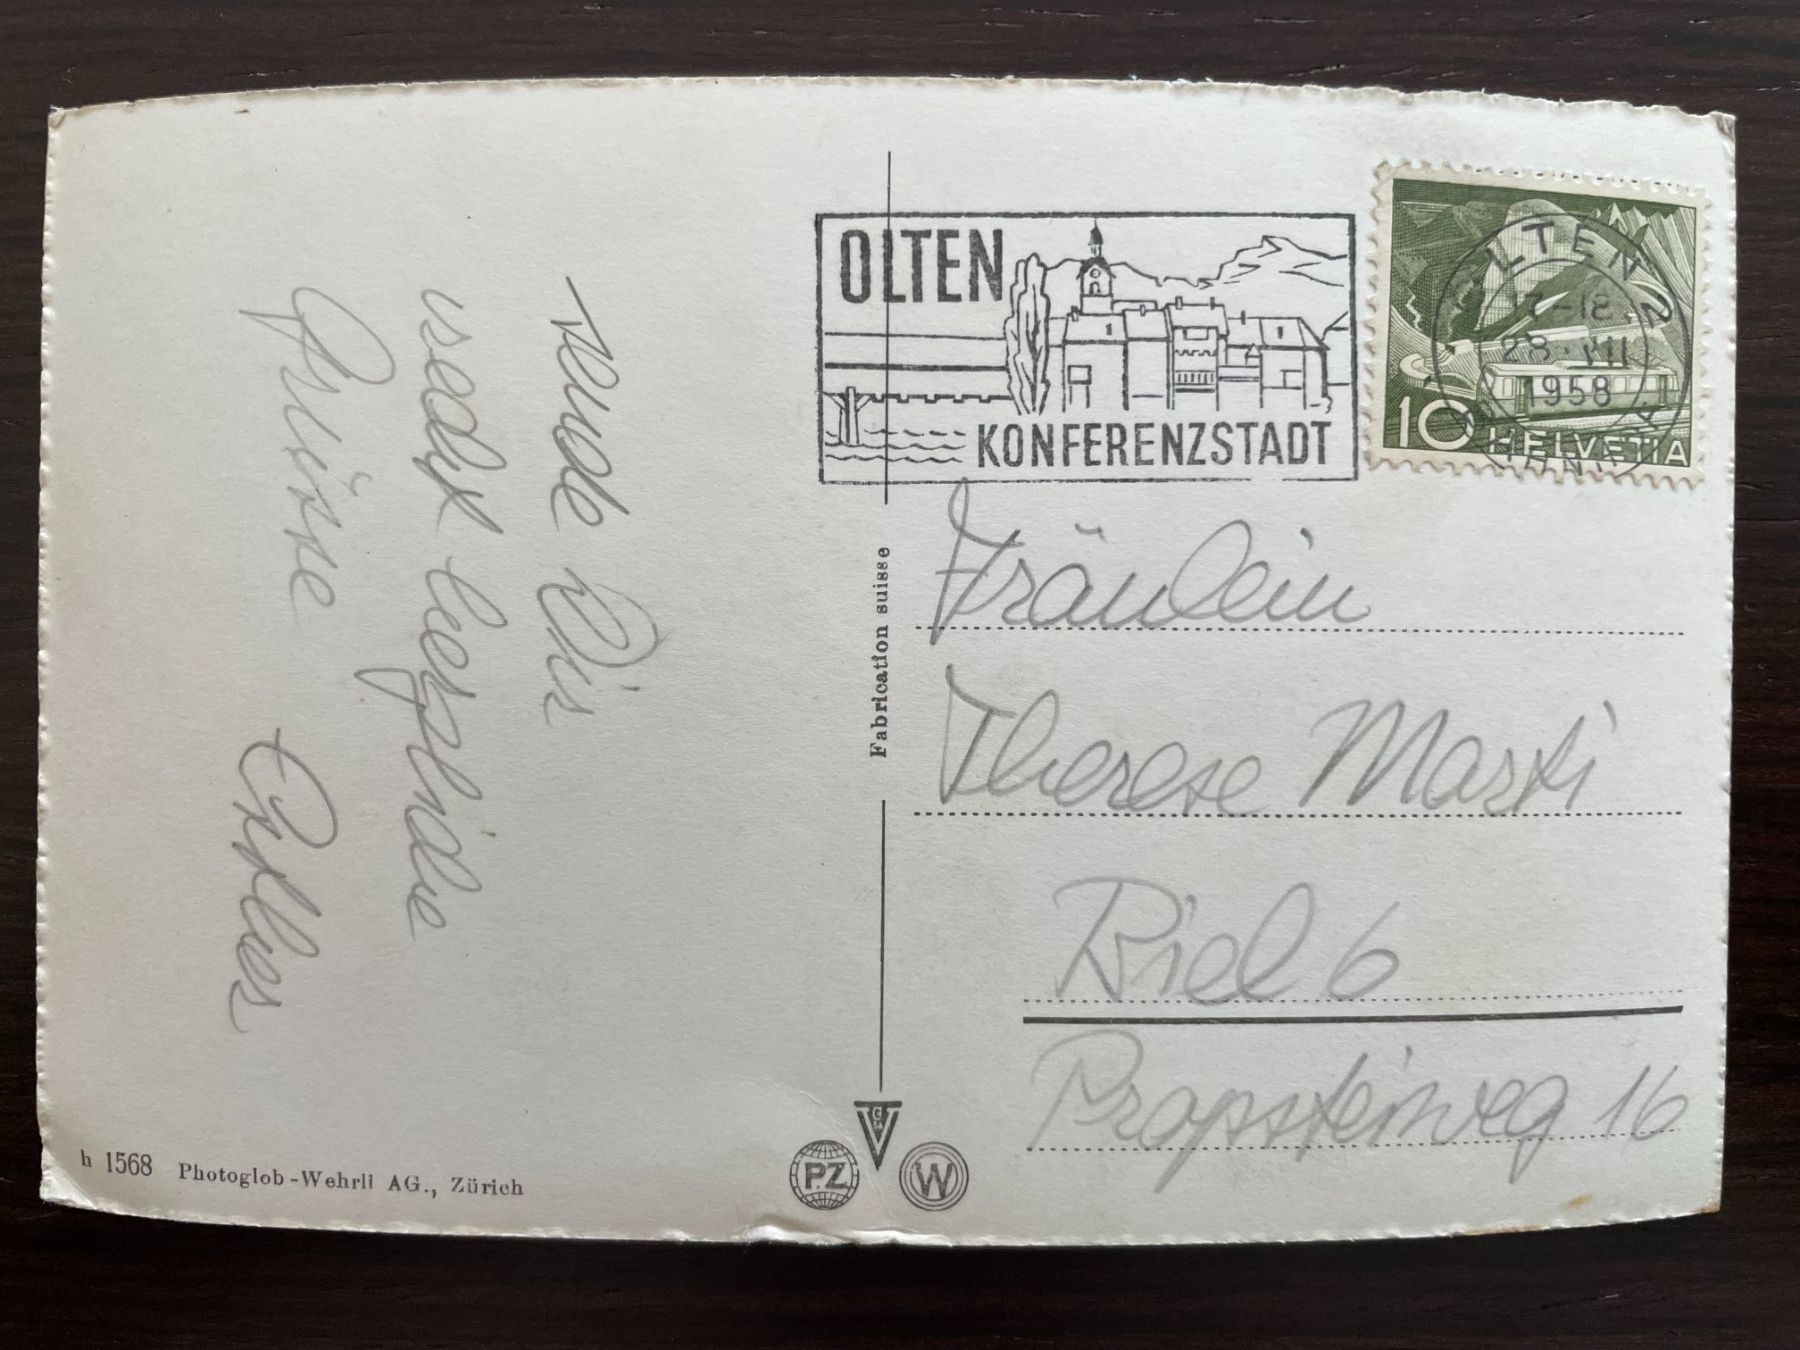 sende Dir
recht herzliche
Grüsse
OLTEN
KONFERENZSTADT
OLTEN 2
28.VII
1958
10 HELVETIA
Fabrication suisse
Fräulein
Therese Marti
Biel 6
Propsteinweg 16
h 1568 Photoglob-Wehrli AG., Zürich
PZ
W